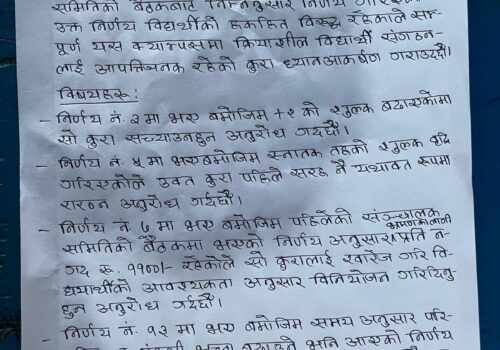 समितिको बैठकबाट निम्नानुसार निर्णय
उक्त निर्णय विद्यार्थीको हकहित विरुद्ध रहेकाले सम्-
पूर्ण यस क्याम्पसमा क्रियाशील विद्यार्थी संगठन-
लाई आपत्तिजनक रहेको कुरा ध्यानआकर्षण गराउदछौं।
विषयहरू:
- निर्णय नं. ३मा भए बमोजिम +२ को शुल्क बढाएकोमा
सो कुरा सच्याउनहुन अनुरोध गर्दछौं।
- निर्णय नं ५मा भए बमोजिम स्नातक तहको शुल्क वृद्धि
गरिएकोले उक्त कुरा पहिले सरह नै यथावत रूपमा
राख्न अनुरोध गर्दछौं।
- निर्णय नं. ७ मा भए बमोजिम पहिलेको सञ्चालक
समितिको बैठकमा भएको निर्णय अनुसार प्रति न-
गद रु. ११००।- रहेकोले सो कुरालाई खारेज गरि वि-
द्यार्थीको आवश्यकता अनुसार विनियोजन गरिदिनु-
हुन अनुरोध गर्दछौं।
- निर्णय नं. १२ मा भए बमोजिम समय अनुसार परि-
भत्ता बढाउने भनि आएको निर्णय